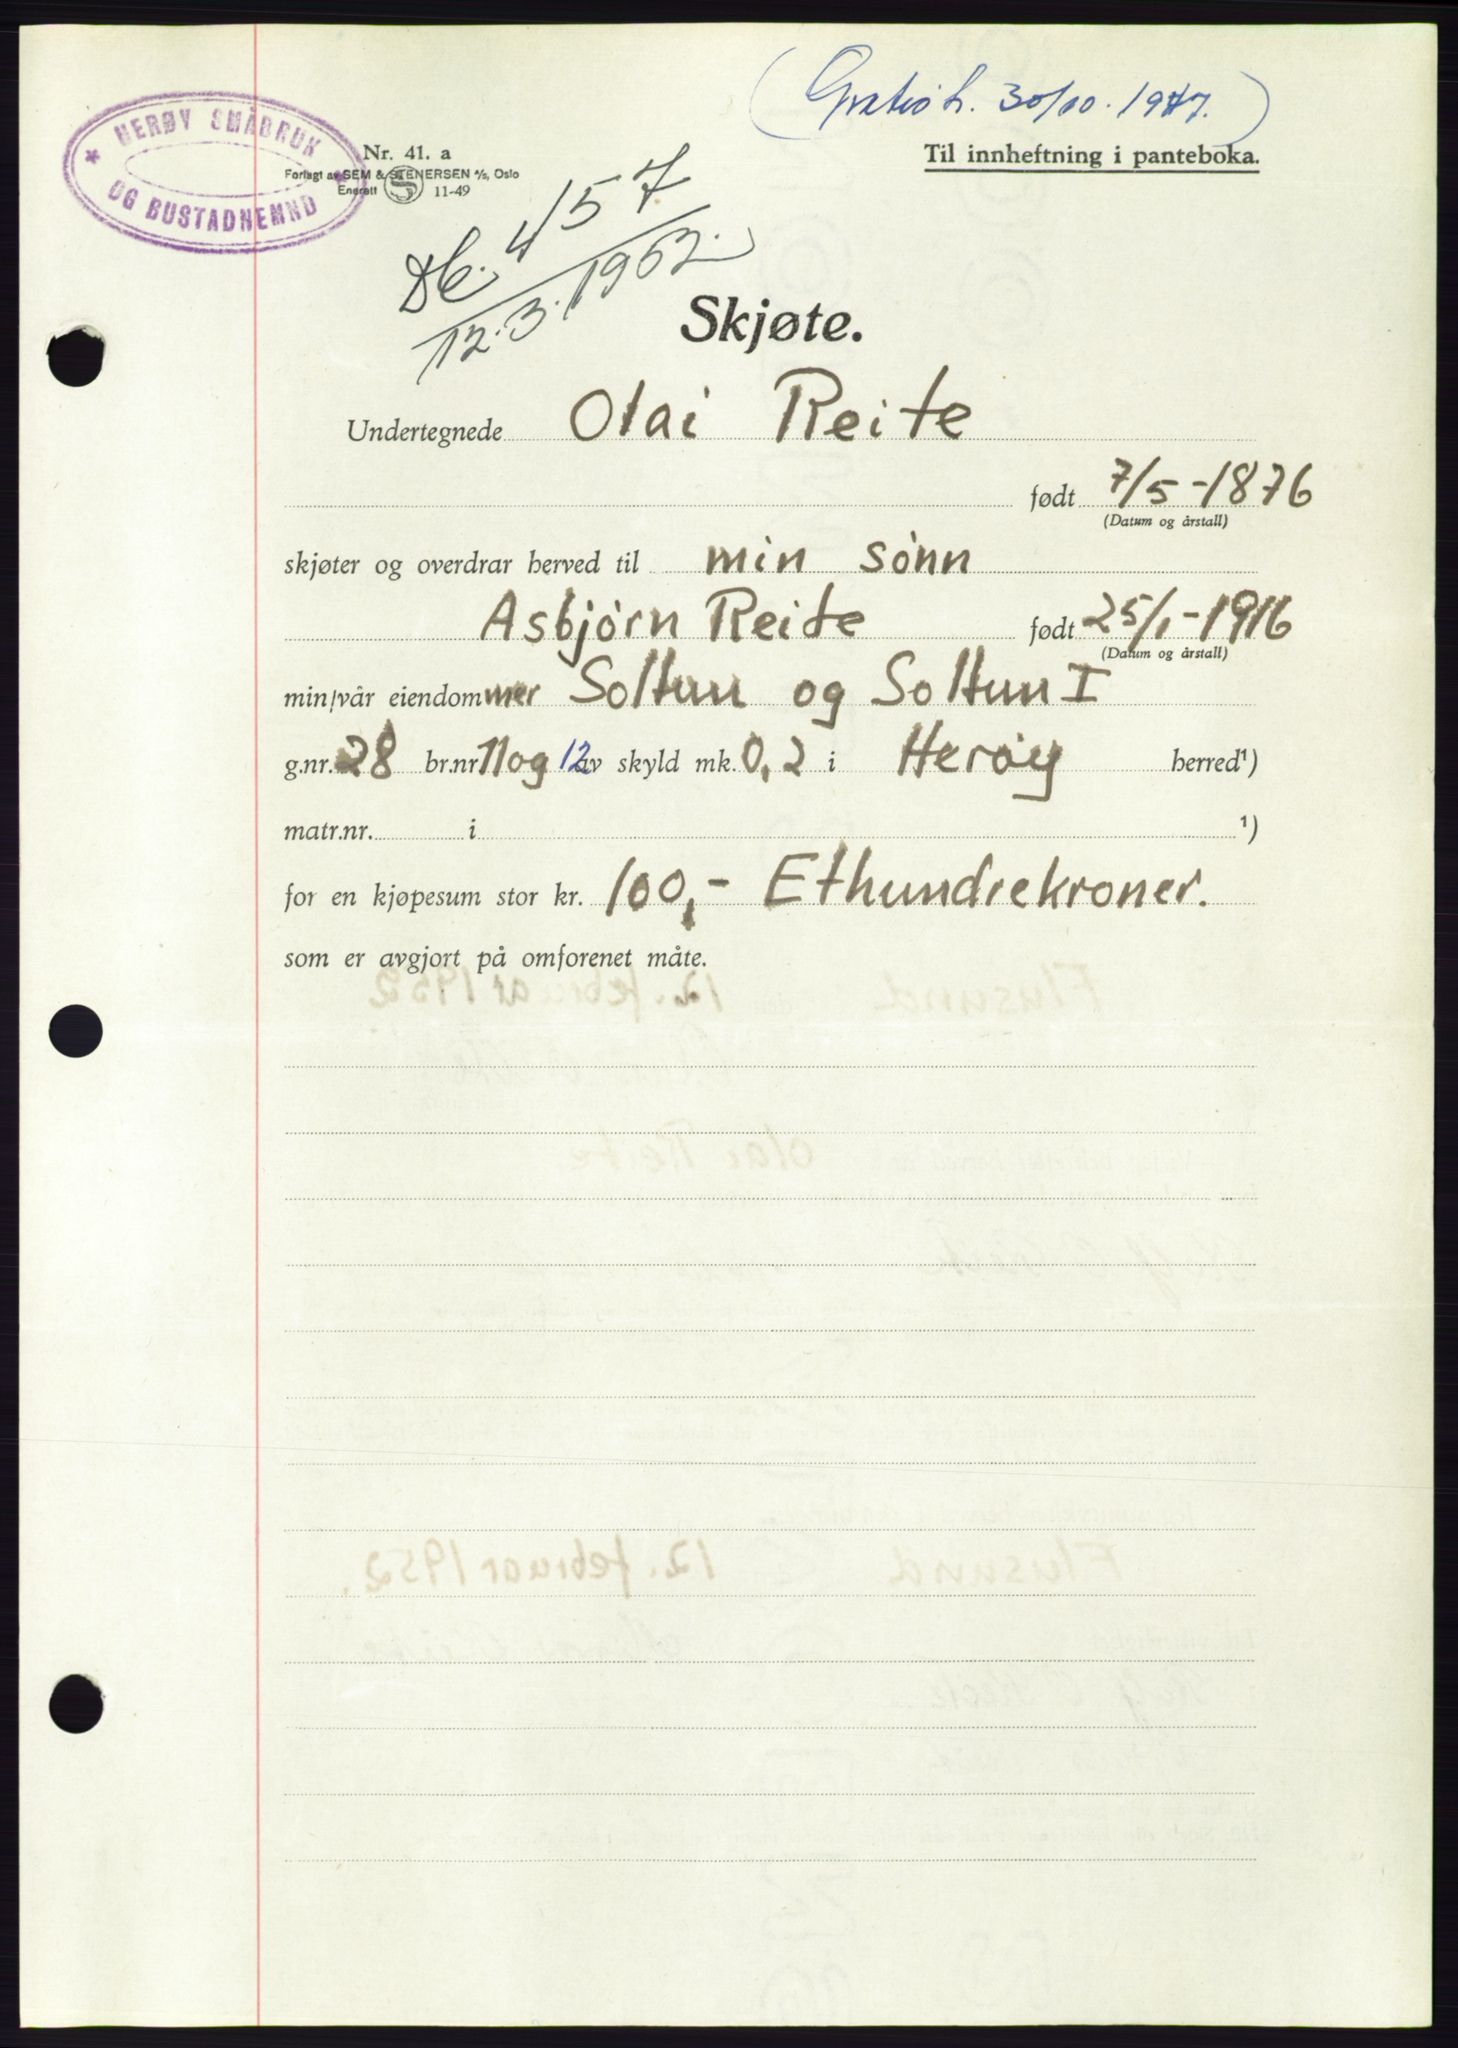 (Gratis h. 30/10. 1947.)
HERØY SMÅBRUK
OG BUSTADNEMND
Nr. 41. a
Til innheftning i panteboka.
Forlagt av SEM & STENERSEN A/S, Oslo
Enerett S 11-49
Db. 457
12.3.1952.
Skjøte.
Undertegnede Olai Reite
født 7/5-1876
(Datum og årstall)
skjøter og overdrar herved til min sønn
Asbjørn Reite født 25/1-1916
(Datum og årstall)
min/vår eiendommer Soltun og Soltun I
g.nr. 28 br.nr. 11 og 12 av skyld mk. 0,2 i Herøy herred¹)
matr.nr. i ¹)
for en kjøpesum stor kr. 100,- Ethundrekroner.
som er avgjort på omforenet måte.